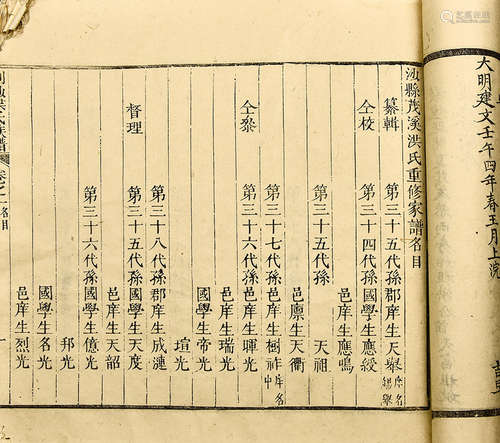 大明建文壬午四年春王月上浣
汕縣茂溪洪氏重修家譜名目
纂輯 第三十五代孫郡庠生天舉庠名錫舉
仝校 第三十四代孫國學生應綬
邑庠生應鳴
第三十五代孫 天祖
邑廩生天衢
仝叅 第三十七代孫邑庠生樹祚庠名中
第三十六代孫邑庠生暉光
邑庠生瑞光
國學生帝光
瑄光
督理 第三十八代孫郡庠生成漣
第三十五代孫國學生天度
邑庠生天韶
第三十六代孫國學生億光
邦光
國學生名光
邑庠生烈光
卷之一名目